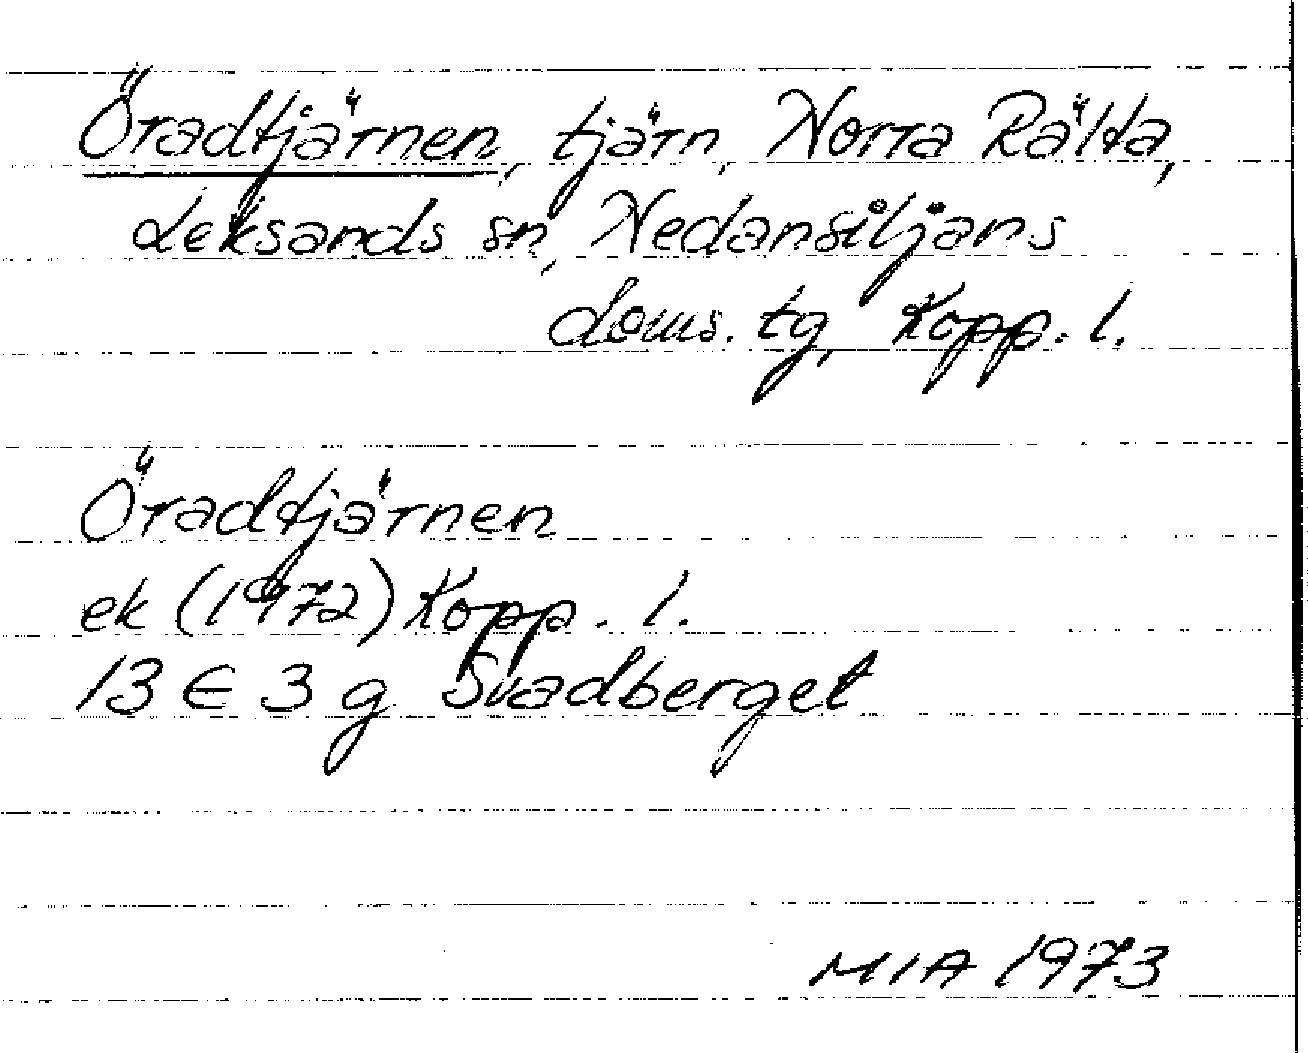 Öradtjärnen, tjärn, Norra Rälta,
Leksands sn, Nedansiljans
doms. tg, Kopp. l.
Öradtjärnen
ek (1972) Kopp. l.
13 E 3 g Svadberget
MIA 1973